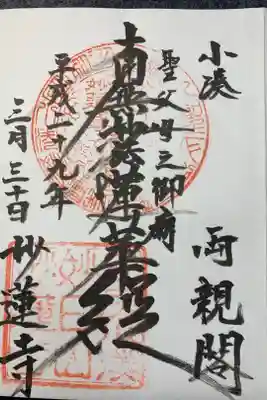 小湊
両親閣
聖父母之御廟
南無妙法蓮華経
平成二十九年
三月三十日
妙蓮寺